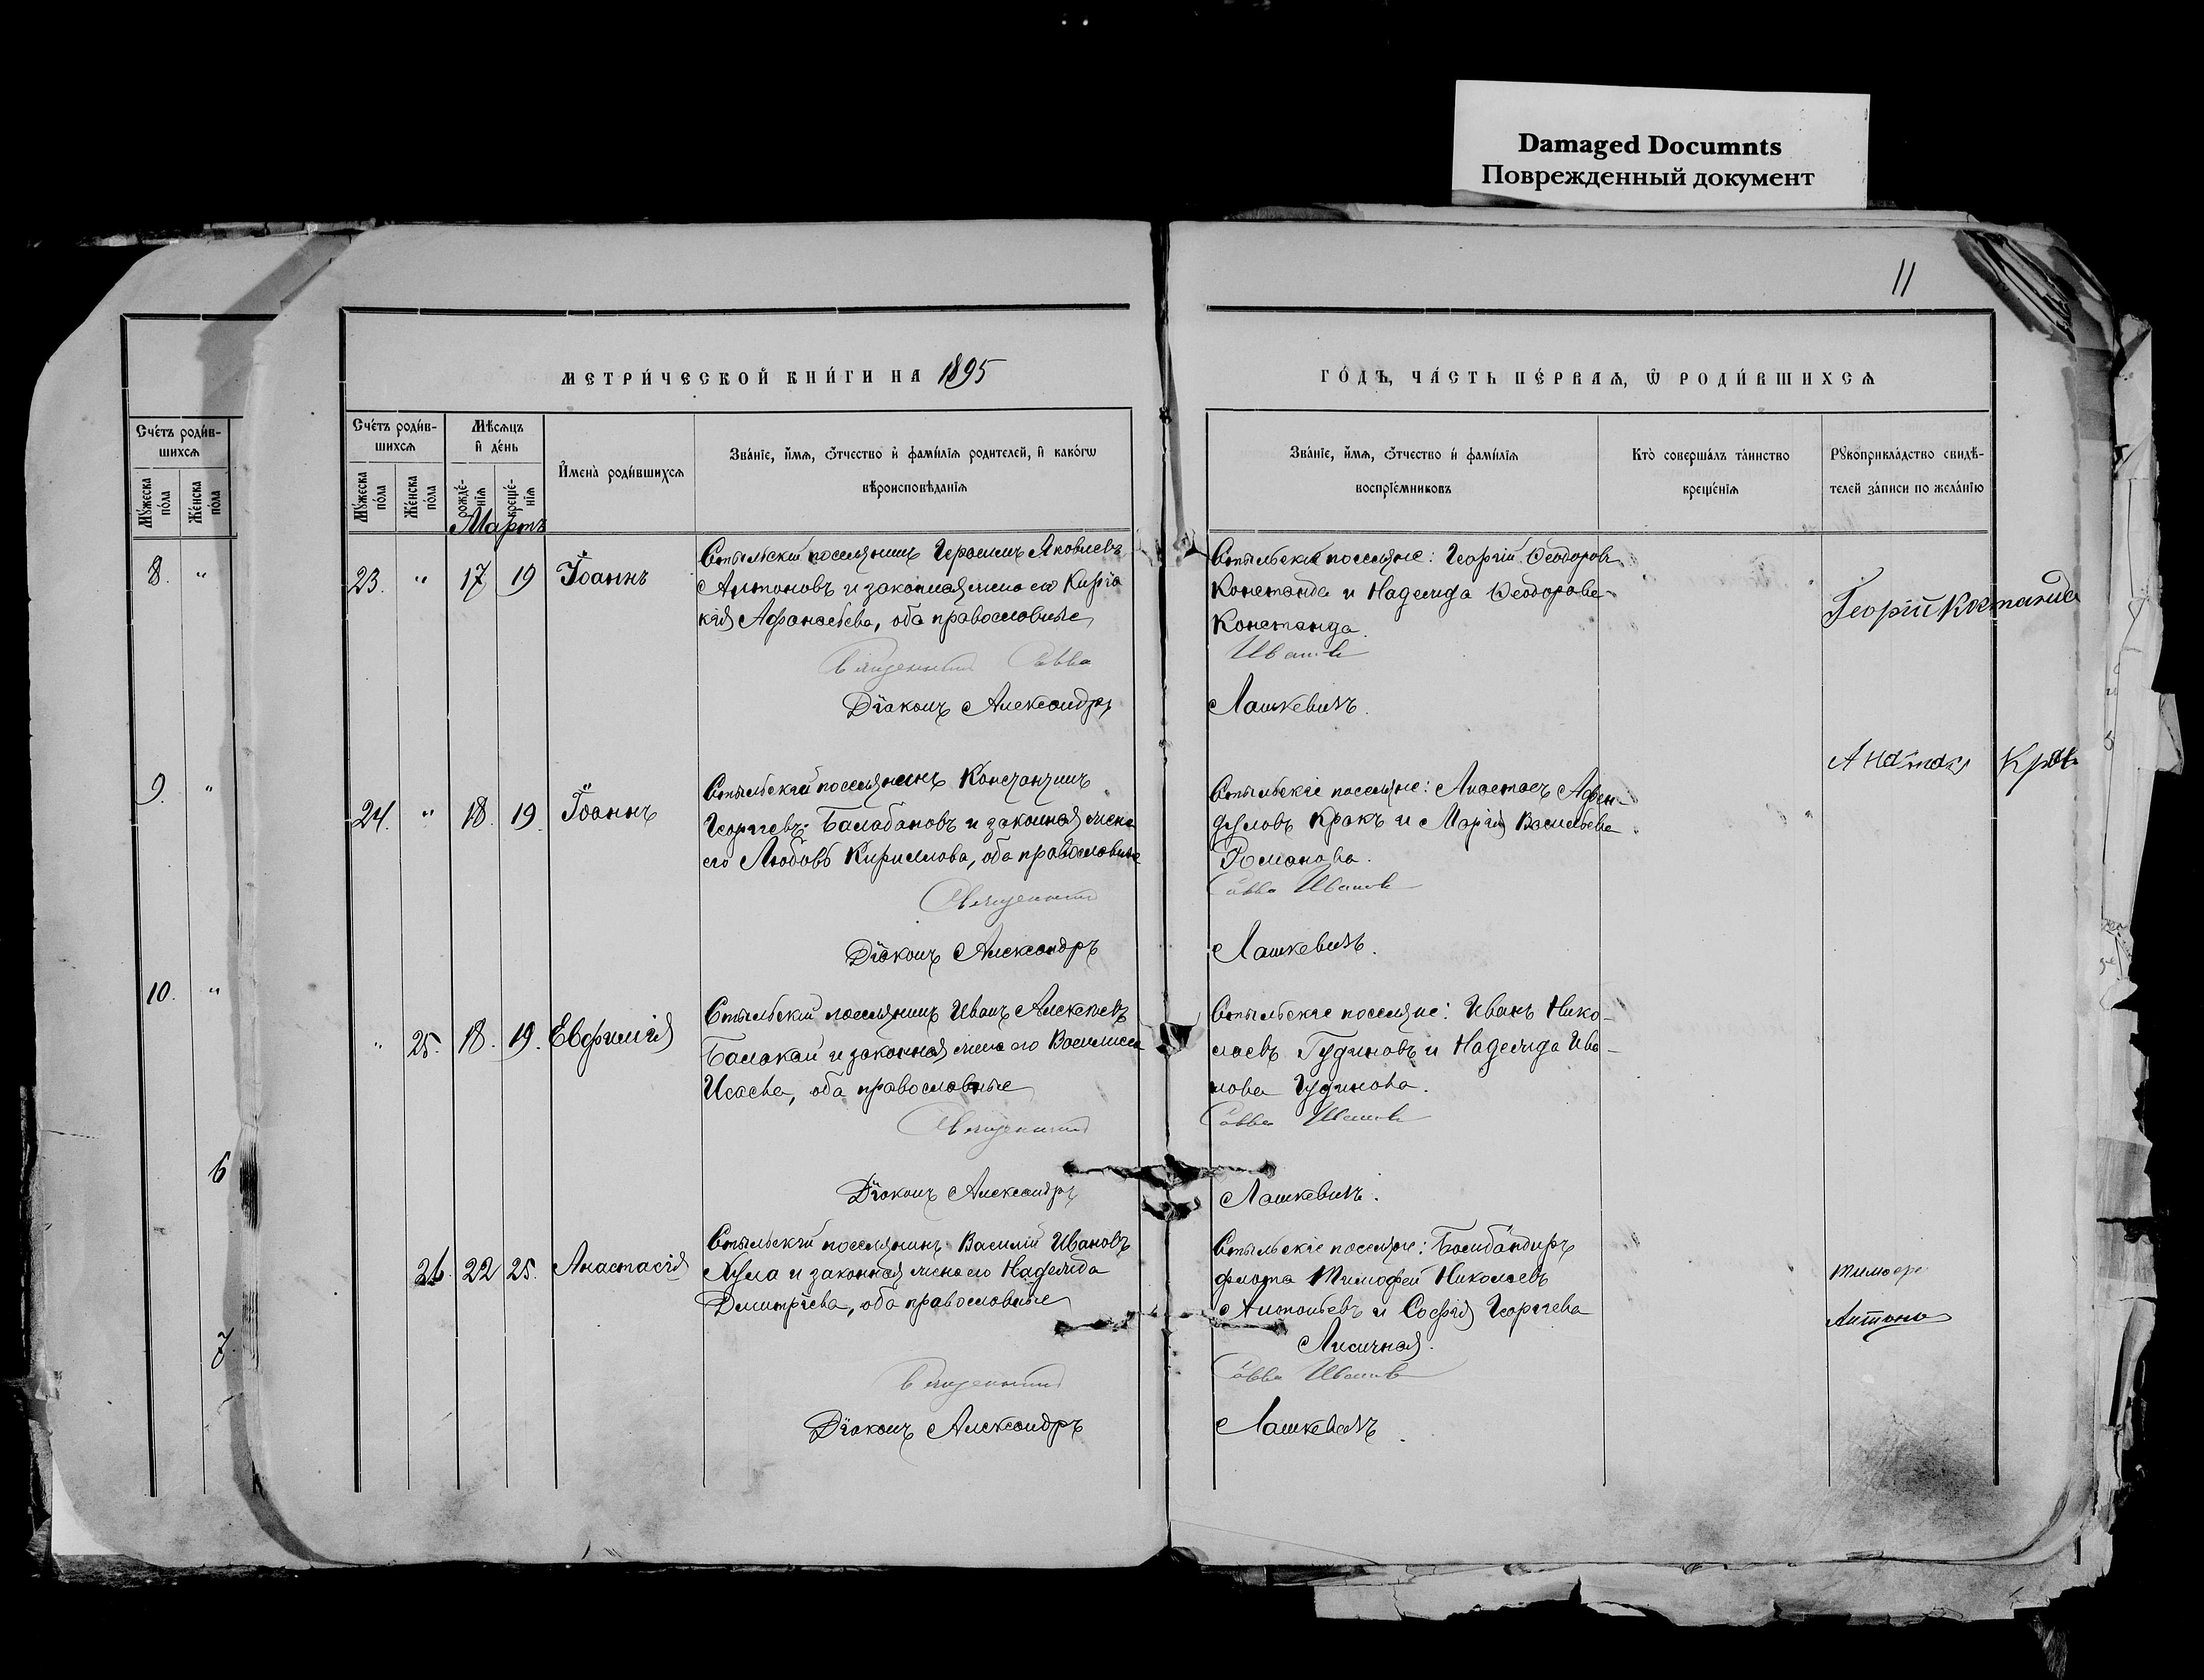 Damaged Documnts
Поврежденный документ
11
МЕТРИ́ЧЕСКОЙ КНИ́ГИ НА 1895
ГО́ДЪ, ЧА́СТЬ ПЕ́РВАѦ, Ѿ РОДИ́ВШИХСѦ
Сче́тъ роди́в-
шихсѧ
Мꙋ́жеска по́ла
Же́нска по́ла
Сче́тъ роди́в-
шихсѧ
Мꙋ́жеска по́ла
Же́нска по́ла
Мѣ́сѧцъ
и҆ де́нь
рожде́-нїѧ
креще́-нїѧ
И҆мена̀ роди́вшихсѧ
Зва́нїе, и҆́мѧ, ѻ҆́тчество и҆ фами́лїѧ родителей, и҆ како́гѡ
вѣроисповѣ́данїѧ
Зва́нїе, и҆́мѧ, ѻ҆́тчество и҆ фами́лїѧ
воспрїе́мниковъ
Кто̀ соверша́лъ та́инство
креще́нїѧ
Рꙋкоприкла́дство свидѣ́-
телей за́писи по жела́нїю
Мартъ
8. "
9. "
10. "
6
7
23. " 17 19 Іоаннъ
Стыльскій поселянинъ Яковлевъ
Антоновъ и законная жена его
Афанасьева, оба православные
Стыльскіе поселяне: Георгій Ѳеодоровъ
Константа и Надежда Ѳеодорова
Константа.
Георгій Костанда
Священникъ Савва Иванов
Діаконъ Александръ Лашкевичъ.
24. " 18. 19. Іоаннъ
Стыльскій поселянинъ Константинъ
Георгіевъ Балабановъ и законная жена
его Любовь Кириллова, оба православные
Стыльскіе поселяне: Анастасъ Афен-
дуловъ Кракъ и Марія Васильева
Романова.
Священникъ Савва Иванов
Діаконъ Александръ Лашкевичъ.
" 25. 18. 19. Евфимія
Стыльскій поселянинъ Иванъ Алексѣевъ
Балакай и законная жена его Василиса
Исаева, оба православные
Стыльскіе поселяне: Иванъ Нико-
лаевъ Гудиновъ и Надежда Ива-
нова Гудинова.
Священникъ Савва Иванов
Діаконъ Александръ Лашкевичъ.
26. 22 25. Анастасія
Стыльскій поселянинъ Василій Ивановъ
и законная жена его Надежда
Димитріева, оба православные
Стыльскіе поселяне: Бомбандиръ
флота Тимофей Николаевъ
Антоновъ и Софія Георгіева
Лисичная.
Тимофе
Антоно
Священникъ Савва Иванов
Діаконъ Александръ Лашкевичъ